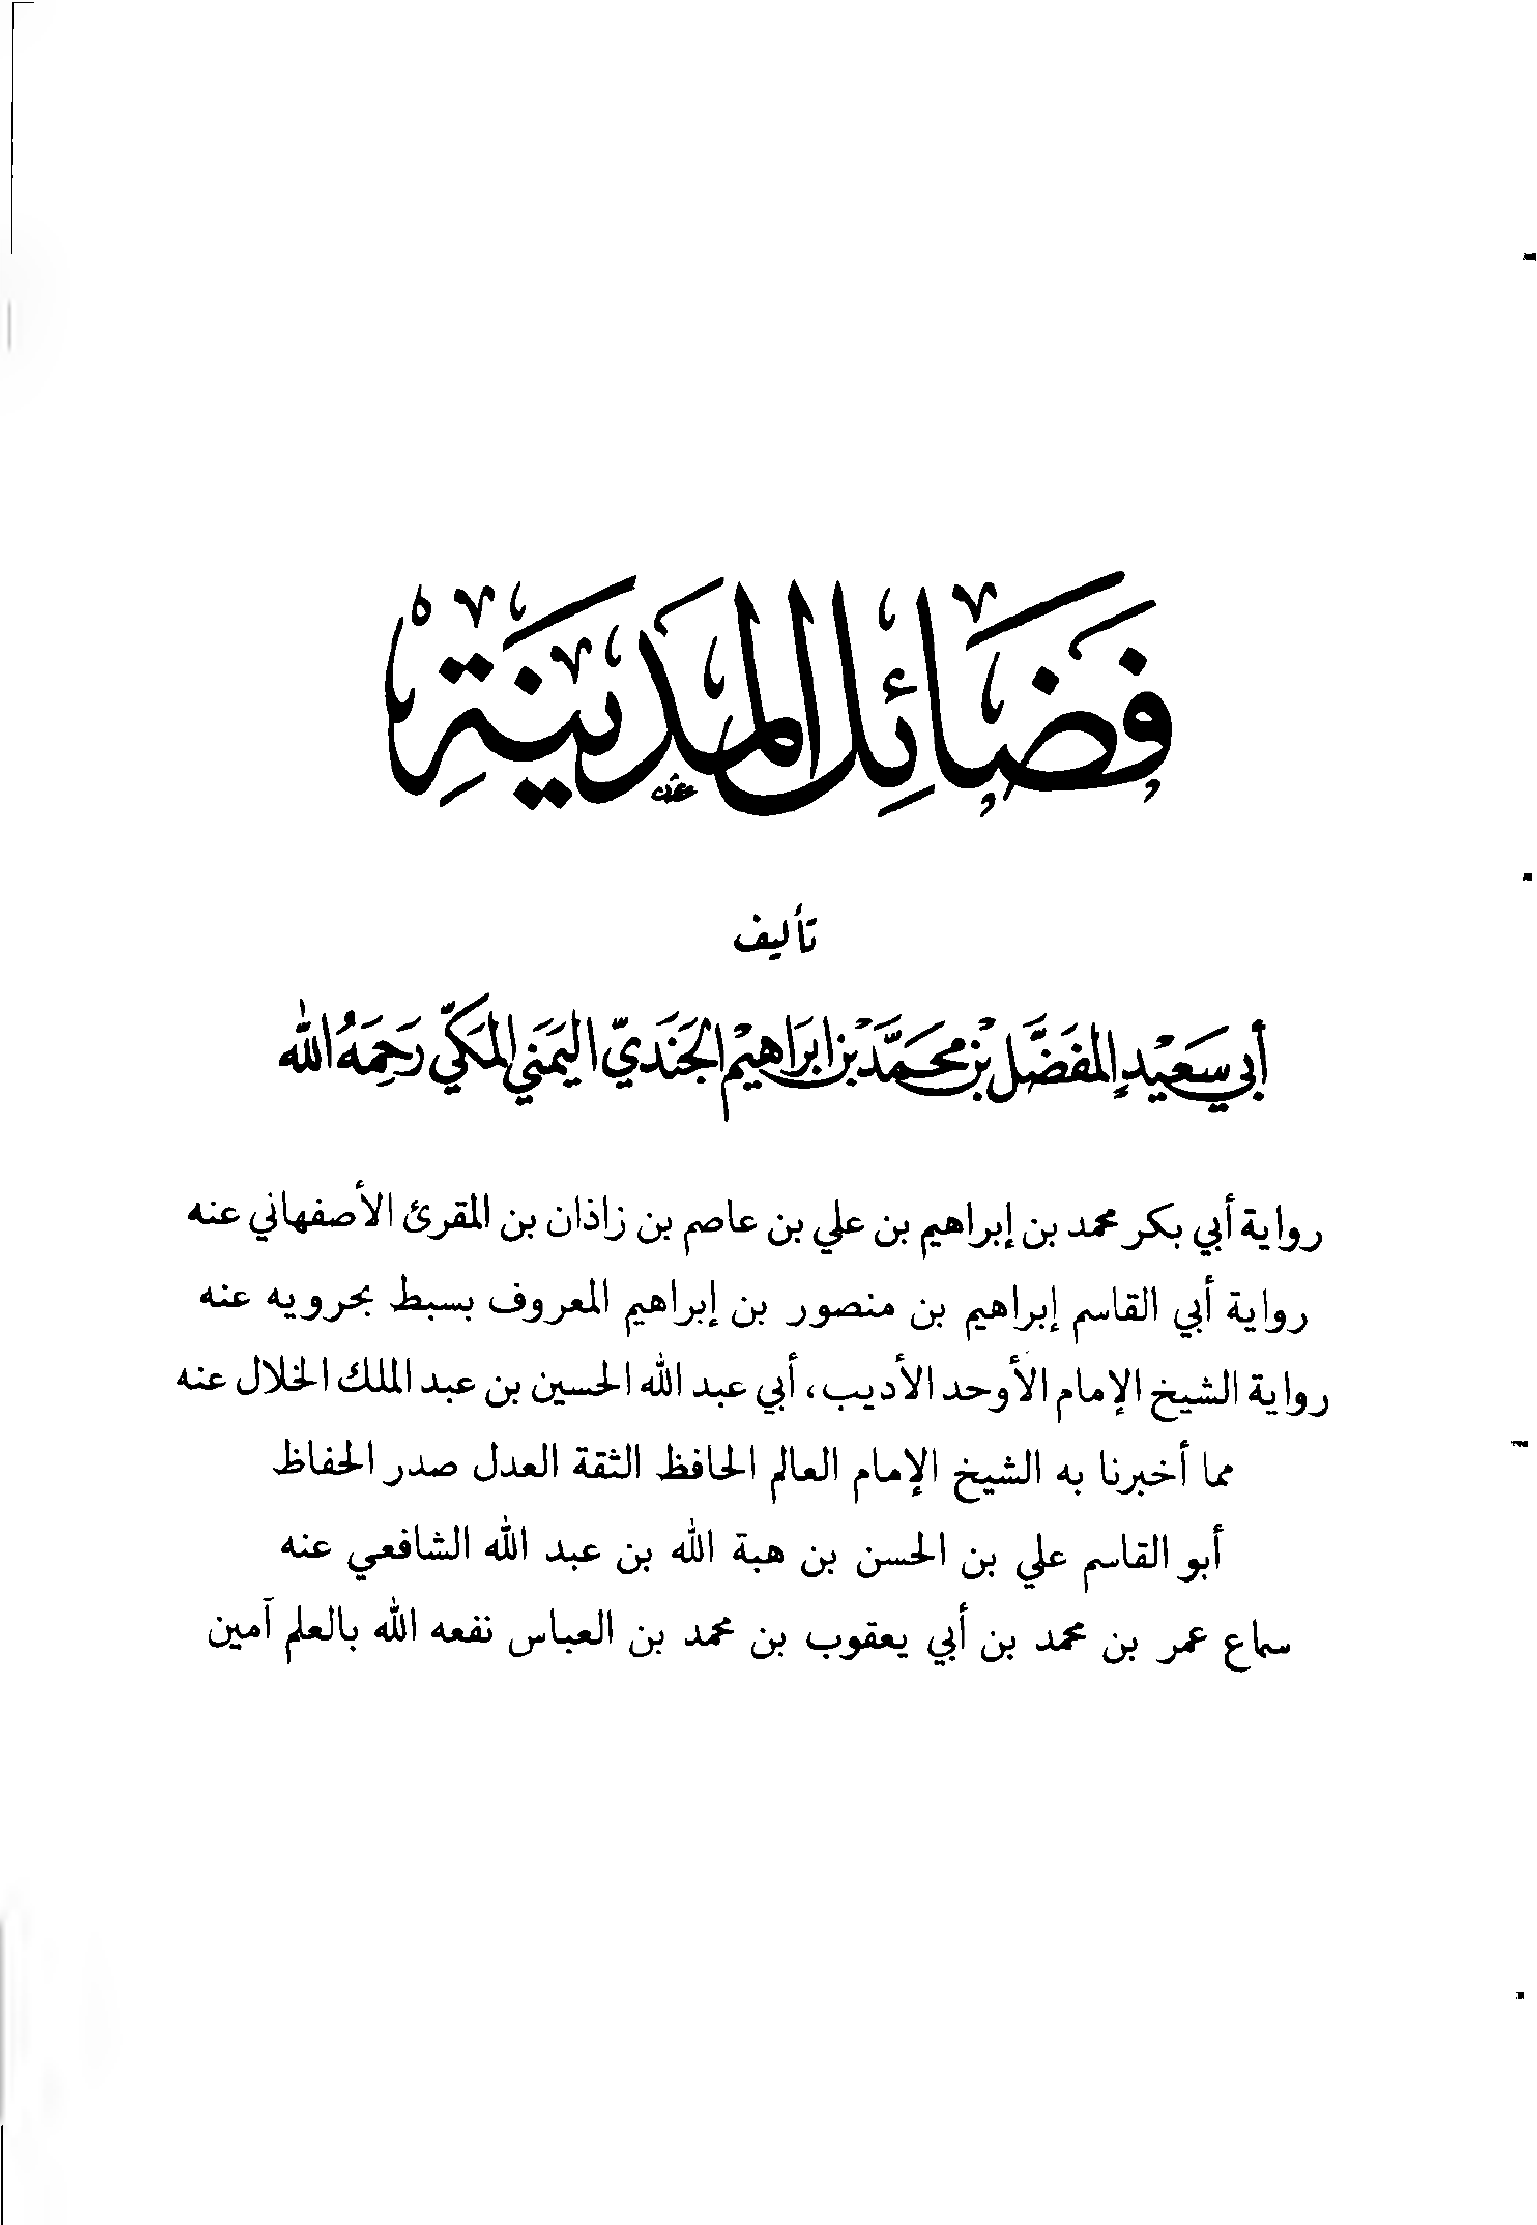 فَضَائِل المَدينَةِ
تأليف
أبي سَعيْدٍ المفَضَّل بْن محَمَّد بْن ابرَاهيْم الجَنَديّ اليَمَني المَكيّ رَحِمَهُ الله
رواية أبي بكر محمد بن إبراهيم بن علي بن عاصم بن زاذان بن المقرئ الأصفهاني عنه
رواية أبي القاسم إبراهيم بن منصور بن إبراهيم المعروف بسبط بحرويه عنه
رواية الشيخ الإمام الأوحد الأديب، أبي عبد الله الحسين بن عبد الملك الخلال عنه
مما أخبرنا به الشيخ الإمام العالم الحافظ الثقة العدل صدر الحفاظ
أبو القاسم علي بن الحسن بن هبة الله بن عبد الله الشافعي عنه
سماع عمر بن محمد بن أبي يعقوب بن محمد بن العباس نفعه الله بالعلم آمين